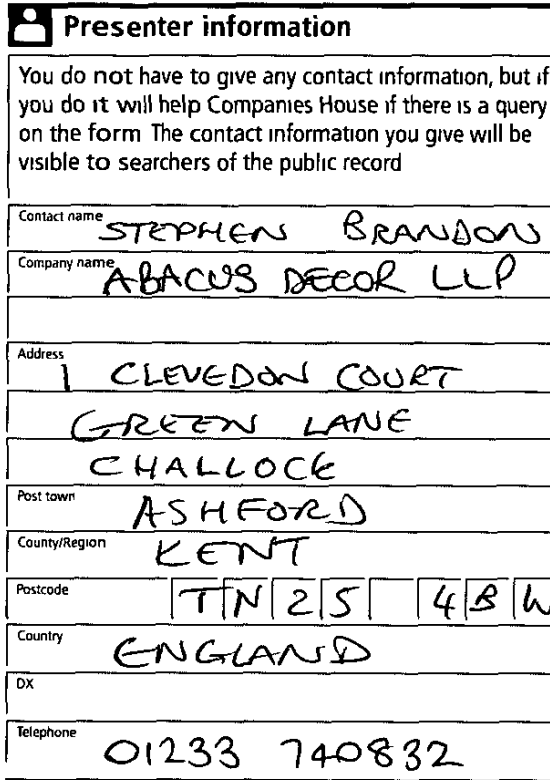 Presenter information
You do not have to give any contact information, but if
you do it will help Companies House if there is a query
on the form The contact information you give will be
visible to searchers of the public record
Contact name STEPHEN BRANDON
Company name ABACUS DECOR LLP
Address 1 CLEVEDON COURT
GREEN LANE
CHALLOCK
Post town ASHFORD
County/Region KENT
Postcode TN25 4BW
Country ENGLAND
DX
Telephone 01233 740832